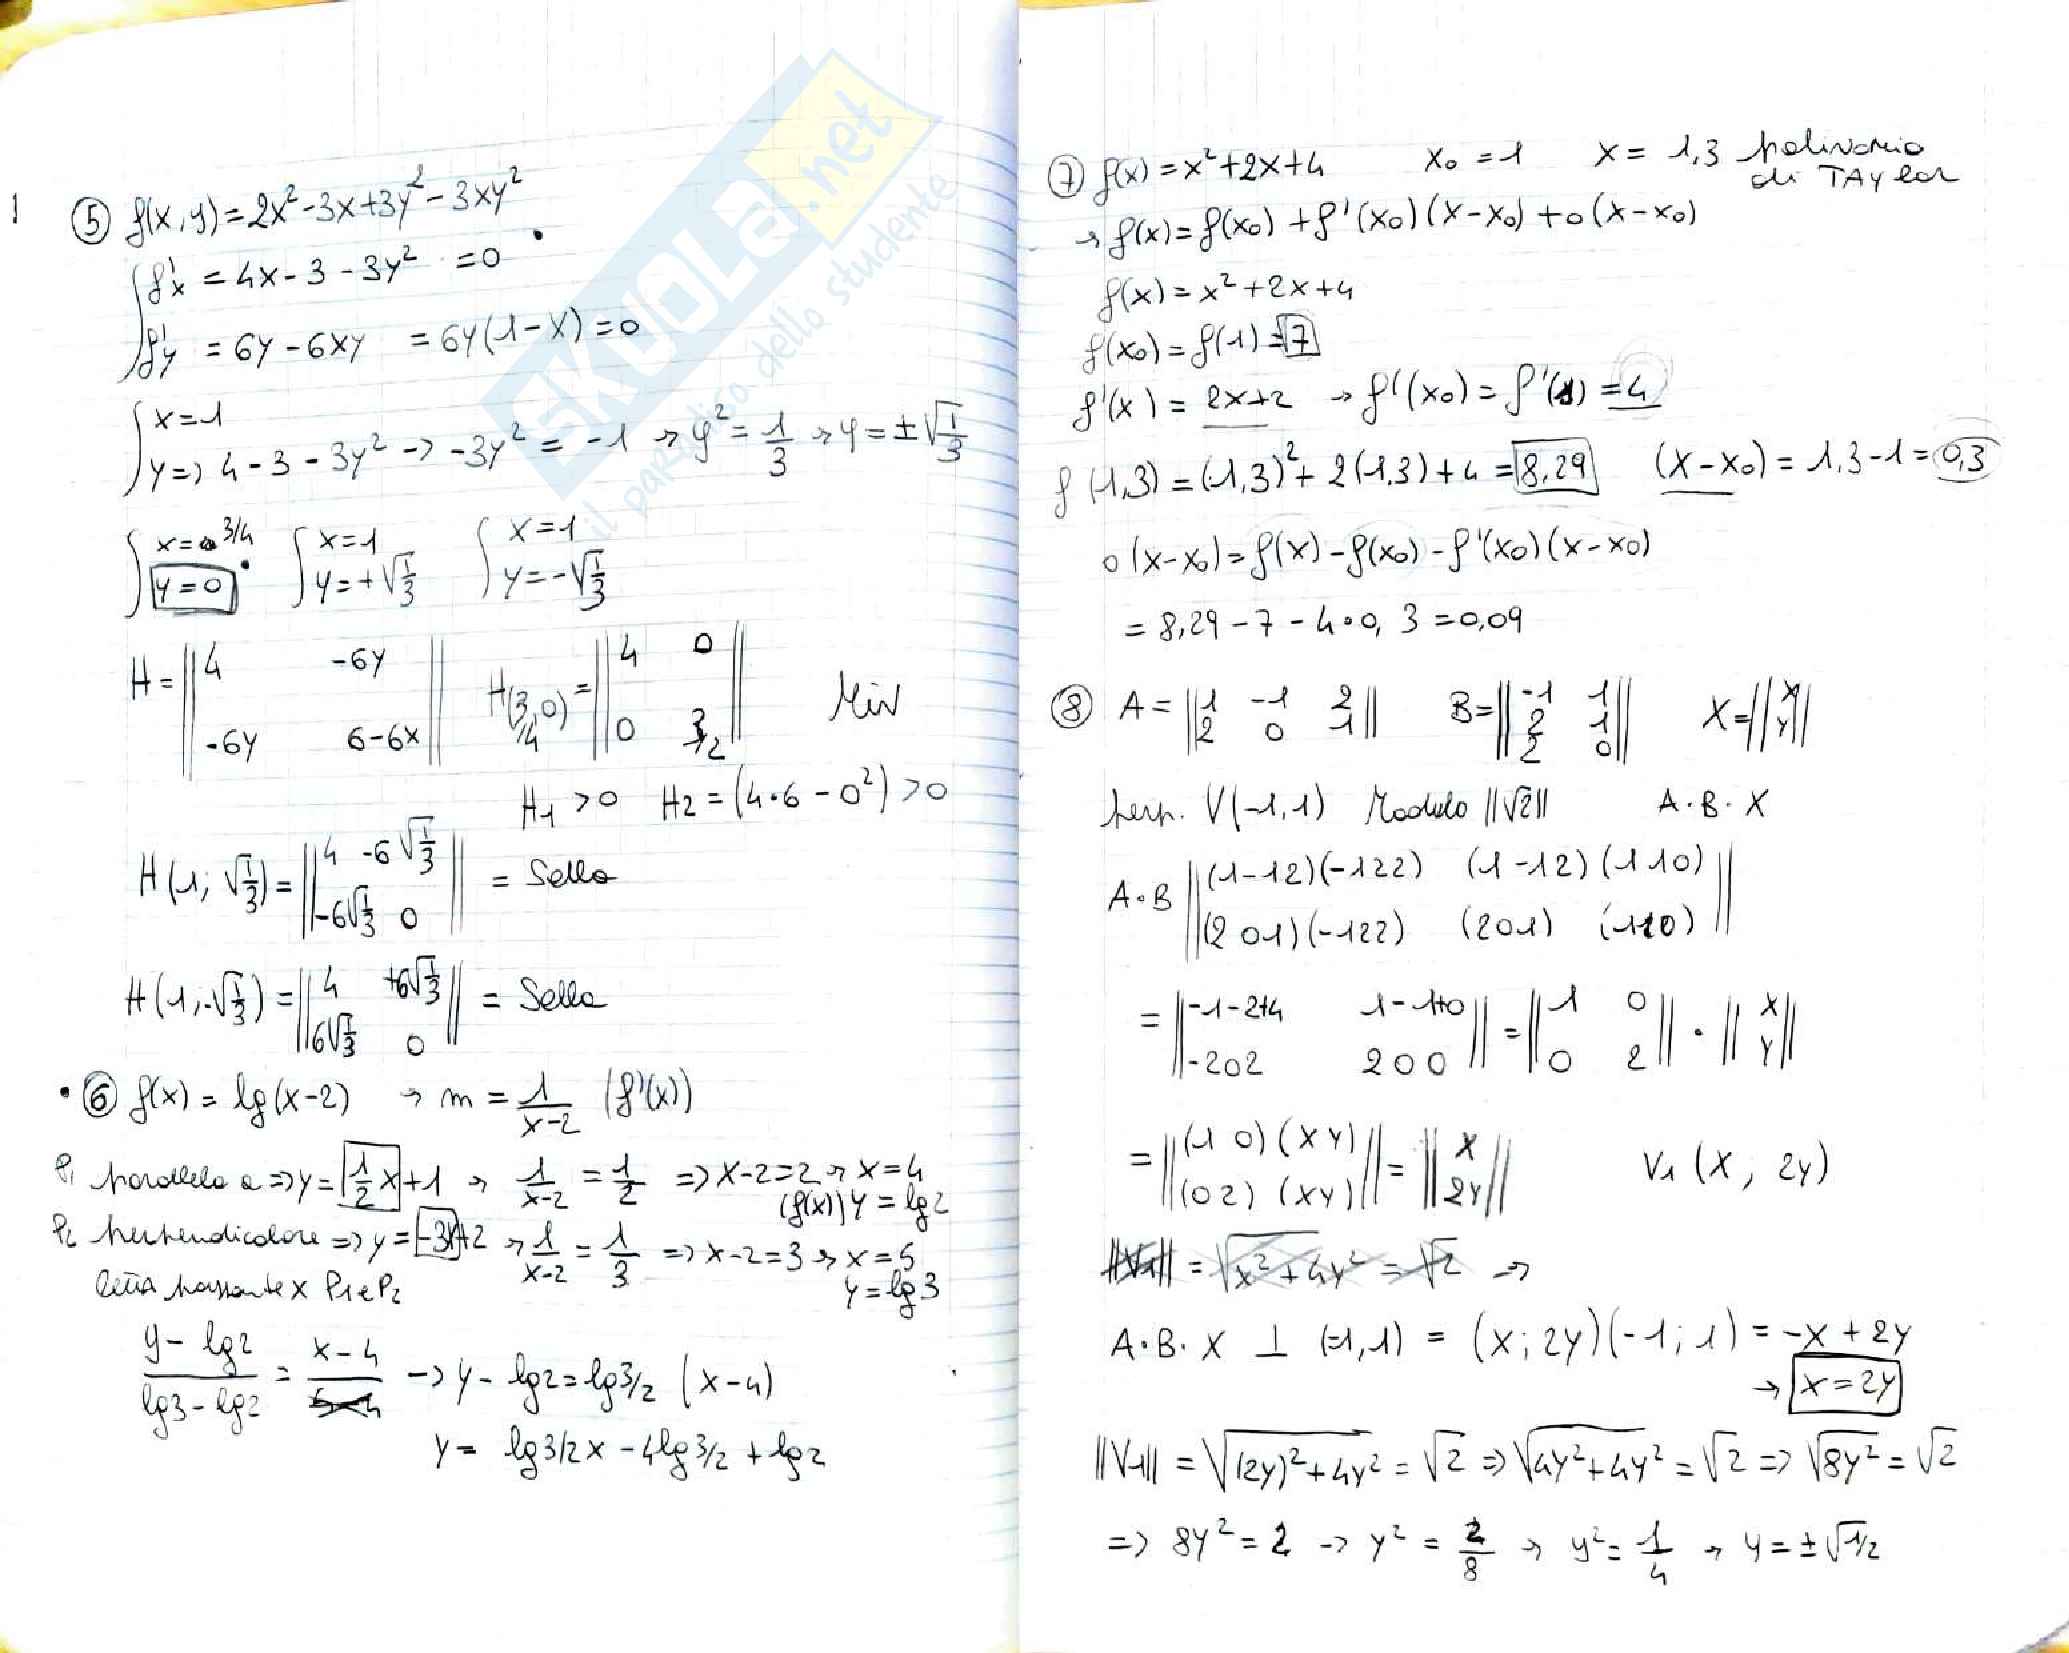 1
⑤ f(x,y) = 2x² - 3x + 3y² - 3xy²
f'x = 4x - 3 - 3y² = 0
f'y = 6y - 6xy = 6y(1-x) = 0
x = 1
y => 4 - 3 - 3y² → -3y² = -1 → y² = 1/3 → y = ±√1/3
x = 3/4 x = 1 x = 1
y = 0 y = +√1/3 y = -√1/3
H = ‖4 -6y‖ H(3/4, 0) = ‖4 0‖ Min
‖-6y 6-6x‖ ‖0 3/2‖
H1 > 0 H2 = (4·6 - 0²) > 0
H(1; √1/3) = ‖4 -6√1/3‖ = Sella
‖-6√1/3 0‖
H(1; -√1/3) = ‖4 +6√1/3‖ = Sella
‖6√1/3 0‖
• ⑥ f(x) = lg(x-2) → m = 1/x-2 (f'(x))
P1 parallela a => y = 1/2 x + 1 → 1/x-2 = 1/2 => x-2 = 2 → x = 4
(f(x)) y = lg2
P2 perpendicolare => y = -3x+2 → 1/x-2 = 1/3 => x-2 = 3 → x = 5
y = lg3
retta passante x P1 e P2
y - lg2 / lg3 - lg2 = x - 4 / 5-4 → y - lg2 = lg3/2 (x-4)
y = lg3/2x - 4lg3/2 + lg2
⑦ f(x) = x² + 2x + 4 x0 = 1 x = 1,3 polinomio
di TAylor
→ f(x) = f(x0) + f'(x0)(x-x0) + o(x-x0)
f(x) = x² + 2x + 4
f(x0) = f(1) = 7
f'(x) = 2x+2 → f'(x0) = f'(1) = 4
f(1,3) = (1,3)² + 2(1,3) + 4 = 8,29 (x-x0) = 1,3-1 = 0,3
o(x-x0) = f(x) - f(x0) - f'(x0)(x-x0)
= 8,29 - 7 - 4·0,3 = 0,09
⑧ A = ‖1 -1 2‖ B = ‖-1 1‖ X = ‖x‖
‖2 0 1‖ ‖2 1‖ ‖y‖
‖2 0‖
perp. V(-1,1) Modulo ‖√2‖ A·B·X
A·B ‖(1-12)(-122) (1-12)(110)‖
‖(201)(-122) (201) (110)‖
= ‖-1-2+4 1-1+0‖ = ‖1 0‖ · ‖x‖
‖-202 200‖ ‖0 2‖ ‖y‖
= ‖(1 0)(xy)‖ = ‖x‖ V1(x; 2y)
‖(02)(xy)‖ ‖2y‖
‖V1‖ = √x²+4y² = √2 →
A·B·X ⊥ (-1,1) = (x; 2y)(-1; 1) = -x + 2y
→ x = 2y
‖V1‖ = √(2y)²+4y² = √2 => √4y²+4y² = √2 => √8y² = √2
=> 8y² = 2 → y² = 2/8 → y² = 1/4 → y = ±√1/2
SKUOLA.net
il paradiso dello studente